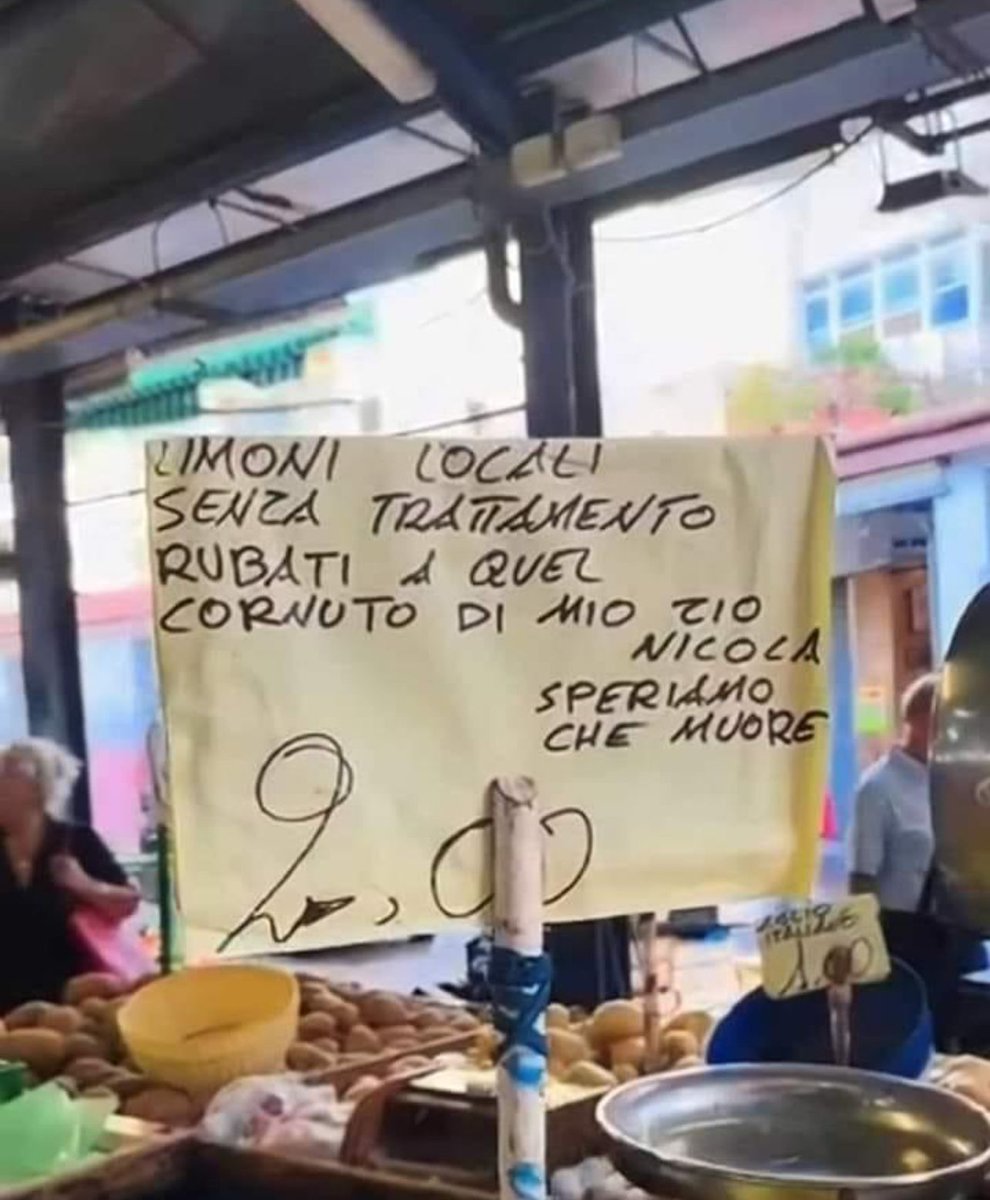 LIMONI LOCALI
SENZA TRATTAMENTO
RUBATI A QUEL
CORNUTO DI MIO ZIO
NICOLA
SPERIAMO
CHE MUORE
2,00
AGLIO
ITALIANO
1,00